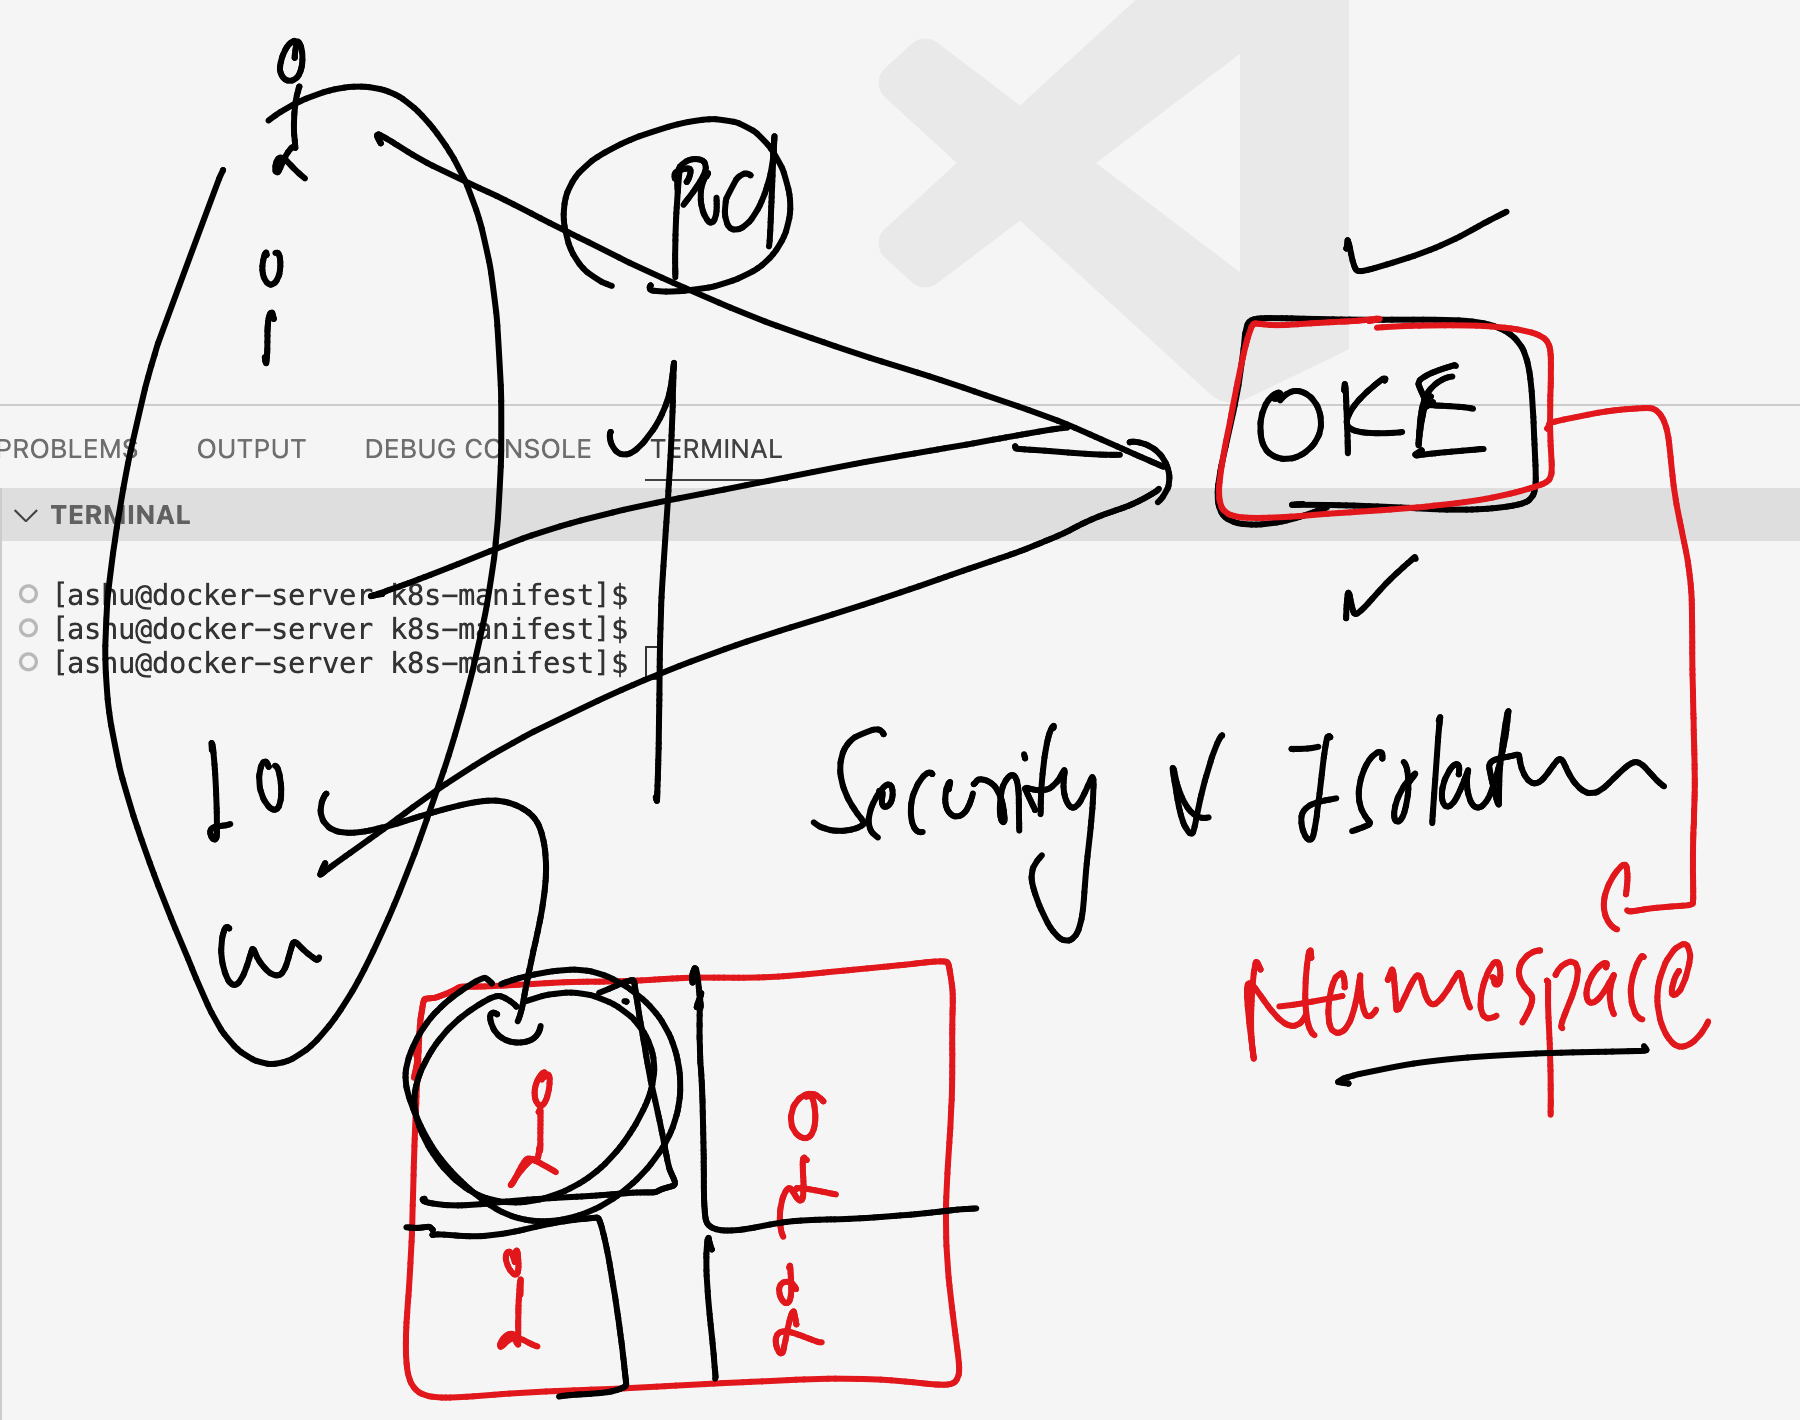 pod
OKE
PROBLEMS OUTPUT DEBUG CONSOLE TERMINAL
TERMINAL
[ashu@docker-server k8s-manifest]$
[ashu@docker-server k8s-manifest]$
[ashu@docker-server k8s-manifest]$
Security & Isolation
Namespace